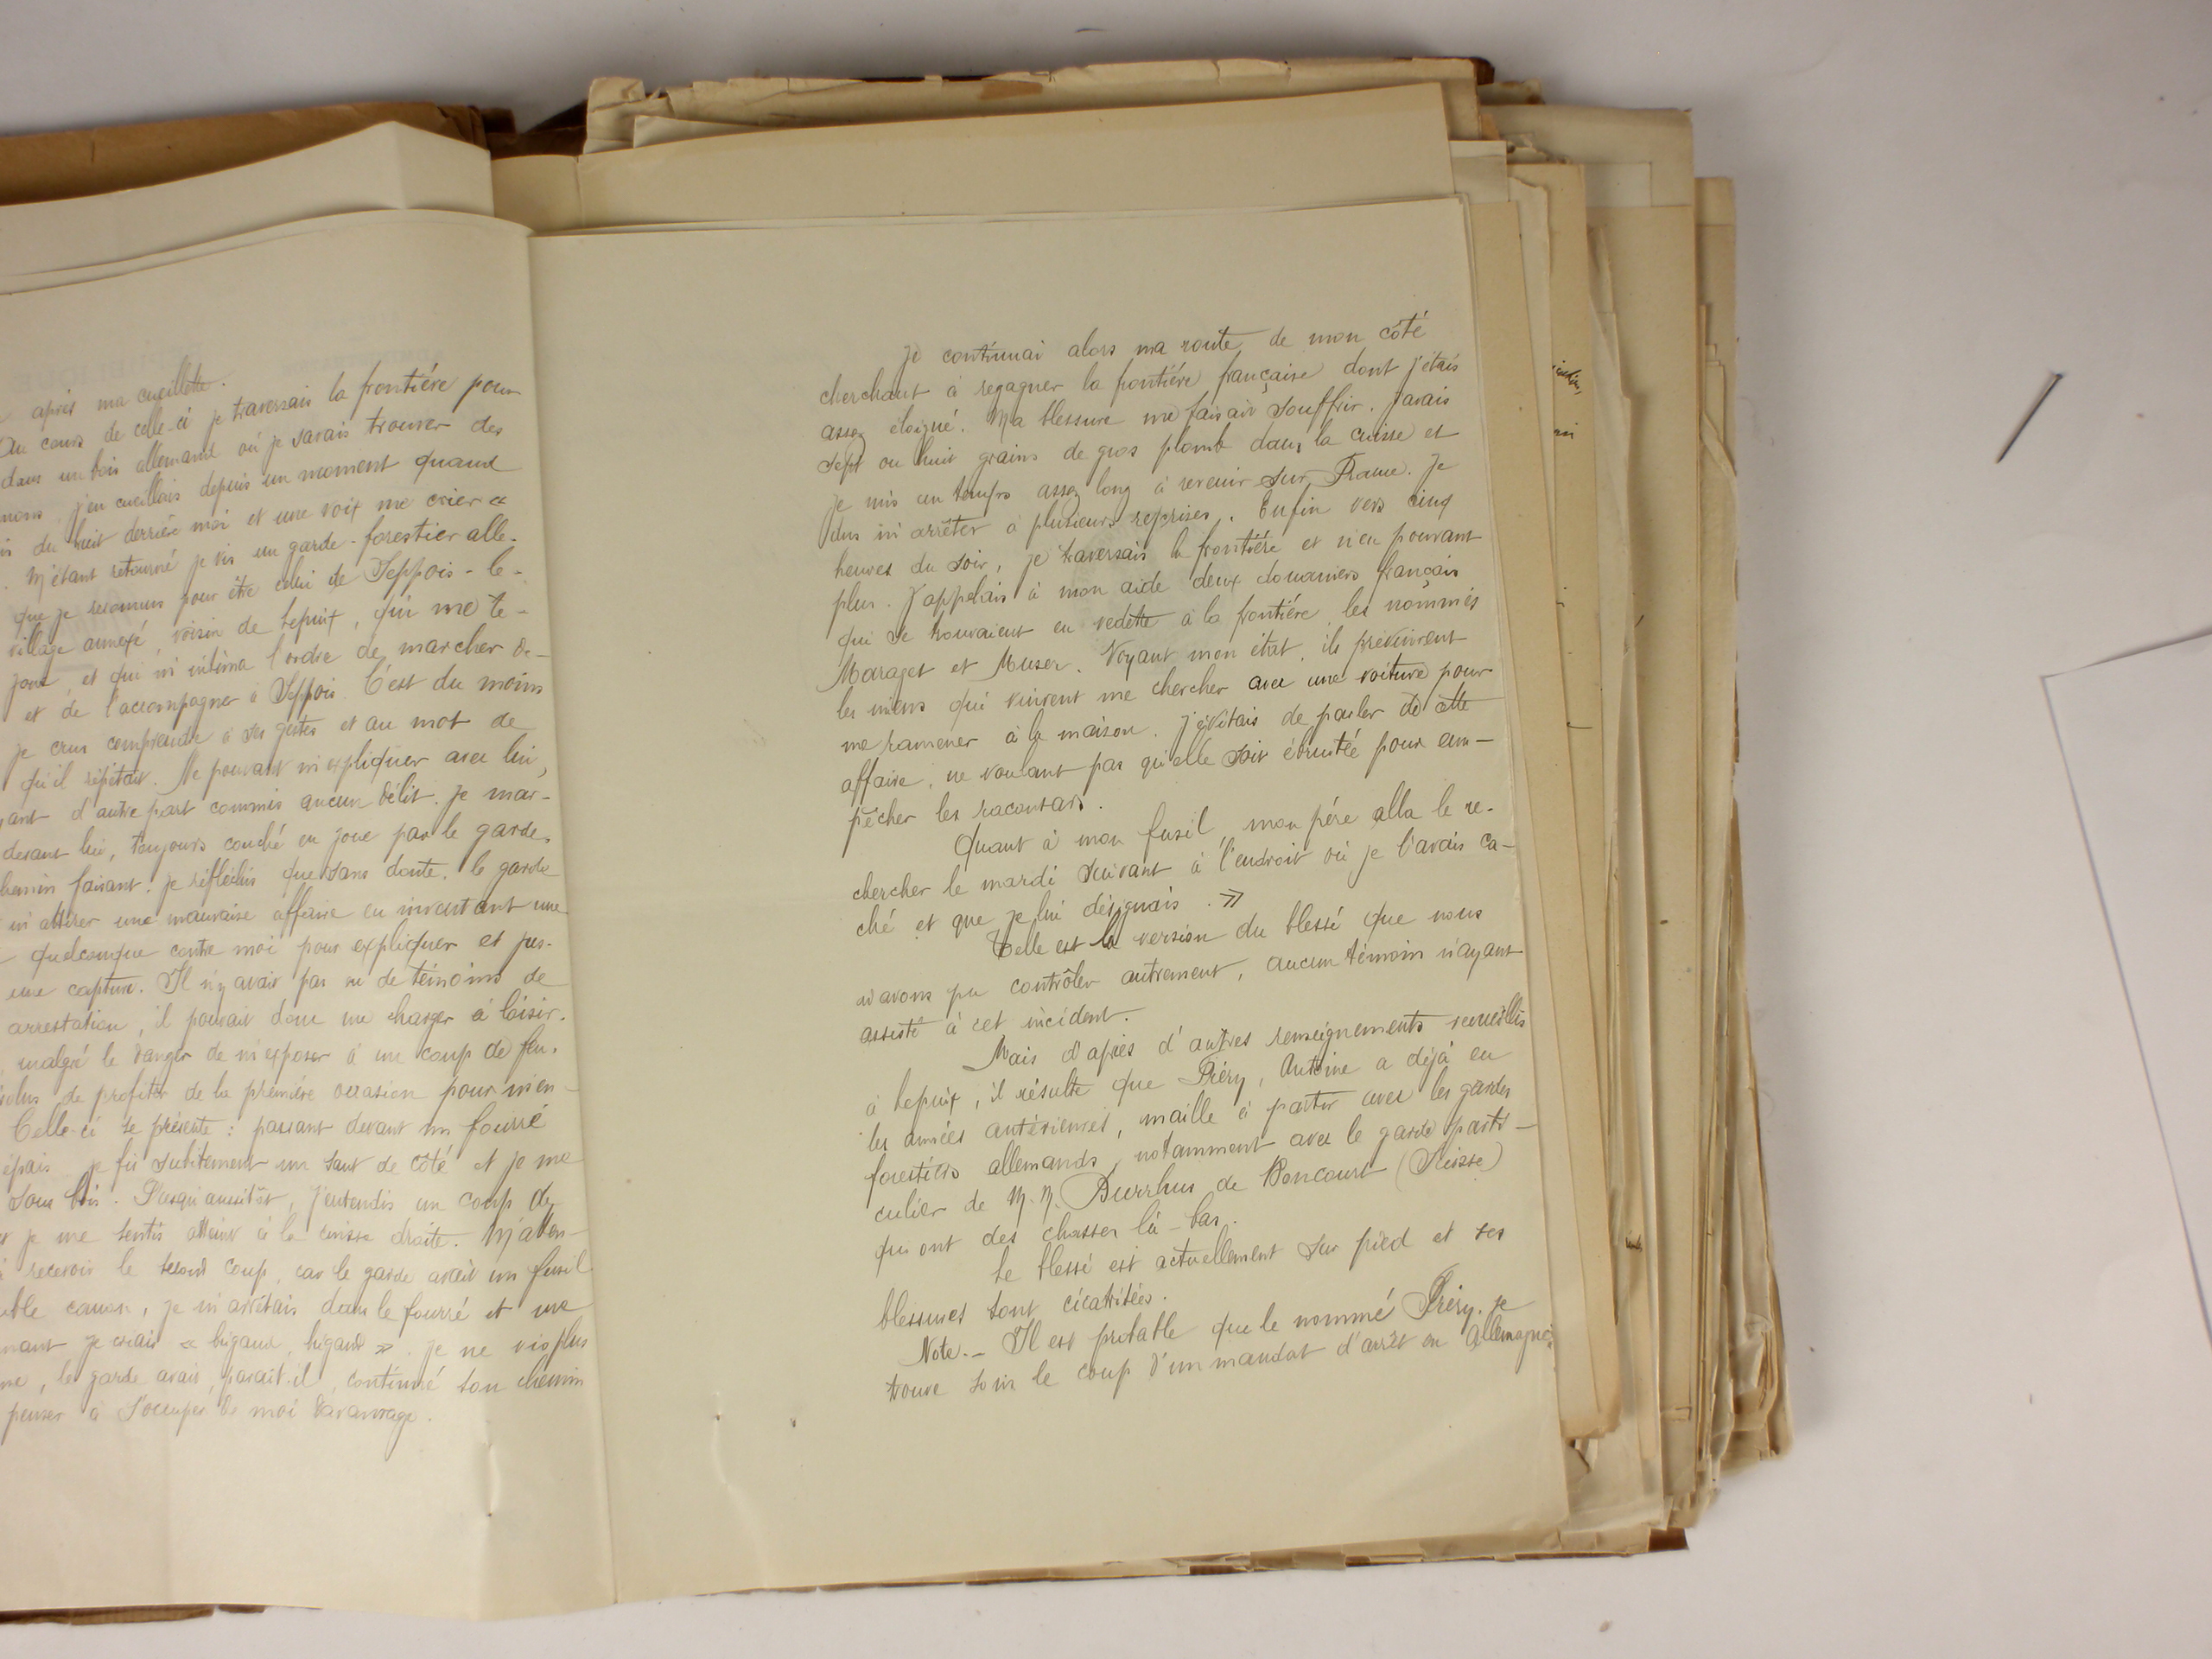 après ma cueillette.
Au cours de celle-ci je traversais la frontière pour
dans un bois allemand où je savais trouver des
j'en cueillais depuis un moment quand
du bruit derrière moi et une voix me crier «
M'étant retourné je vis un garde-forestier alle-
que je reconnus pour être celui de Seppois-le-
village annexé, voisin de Lepuix, qui me te-
joue, et qui m'intima l'ordre de marcher de-
et de l'accompagner à Seppois. C'est du moins
je crus comprendre à ses gestes et au mot de
qu'il répétait. Ne pouvant m'expliquer avec lui,
d'autre part commis aucun délit, je mar-
devant lui, toujours couché en joue par le garde,
faisant, je réfléchis que sans doute, le garde
m'attirer une mauvaise affaire en inventant une
quelconque contre moi pour expliquer et jus-
une capture. Il n'y avait pas eu de témoins de
arrestation, il pouvait donc me charger à loisir.
malgré le danger de m'exposer à un coup de feu,
de profiter de la première occasion pour m'en-
Celle-ci se présente : passant devant un fourré
épais je fis subitement un saut de côté et je me
sous bois. Presqu'aussitôt, j'entendis un coup de
je me sentis atteint à la cuisse droite. M'atten-
recevoir le second coup, car le garde avait un fusil
canon, je m'arrêtais dans le fourré et me
je criais « brigand, brigand ». je ne vis plus
le garde avait, paraît-il, continué son chemin
penser à s'occuper de moi davantage.
Je continuai alors ma route de mon côté
cherchant à regagner la frontière française dont j'étais
assez éloigné. Ma blessure me faisait souffrir. J'avais
sept ou huit grains de gros plomb dans la cuisse et
je mis un temps assez long à revenir sur France. Je
dus m'arrêter à plusieurs reprises. Enfin vers cinq
heures du soir, je traversais la frontière et n'en pouvant
plus. J'appelais à mon aide deux douaniers français
qui se trouvaient en vedette à la frontière, les nommés
Maraget et Muser. Voyant mon état, ils prévinrent
les miens qui vinrent me chercher avec une voiture pour
me ramener à la maison. J'évitais de parler de cette
affaire, ne voulant pas qu'elle soit ébruitée pour em-
pêcher les racontars.
Quant à mon fusil, mon père alla le re-
chercher le mardi suivant à l'endroit où je l'avais ca-
ché et que je lui désignais. »
Telle est la version du blessé que nous
n'avons pu contrôler autrement, aucun témoin n'ayant
assisté à cet incident.
Mais d'après d'autres renseignements recueillis
à Lepuix, il résulte que Fréry, Antoine a déjà eu
les années antérieures, maille à partir avec les gardes
forestiers allemands, notamment avec le garde parti-
culier de M.M. Burrhus de Boncourt (Suisse)
qui ont des chasses là-bas.
Le blessé est actuellement sur pied et ses
blessures sont cicatrisées.
Note.- Il est probable que le nommé Fréry, se
trouve sous le coup d'un mandat d'arrêt en Allemagne.